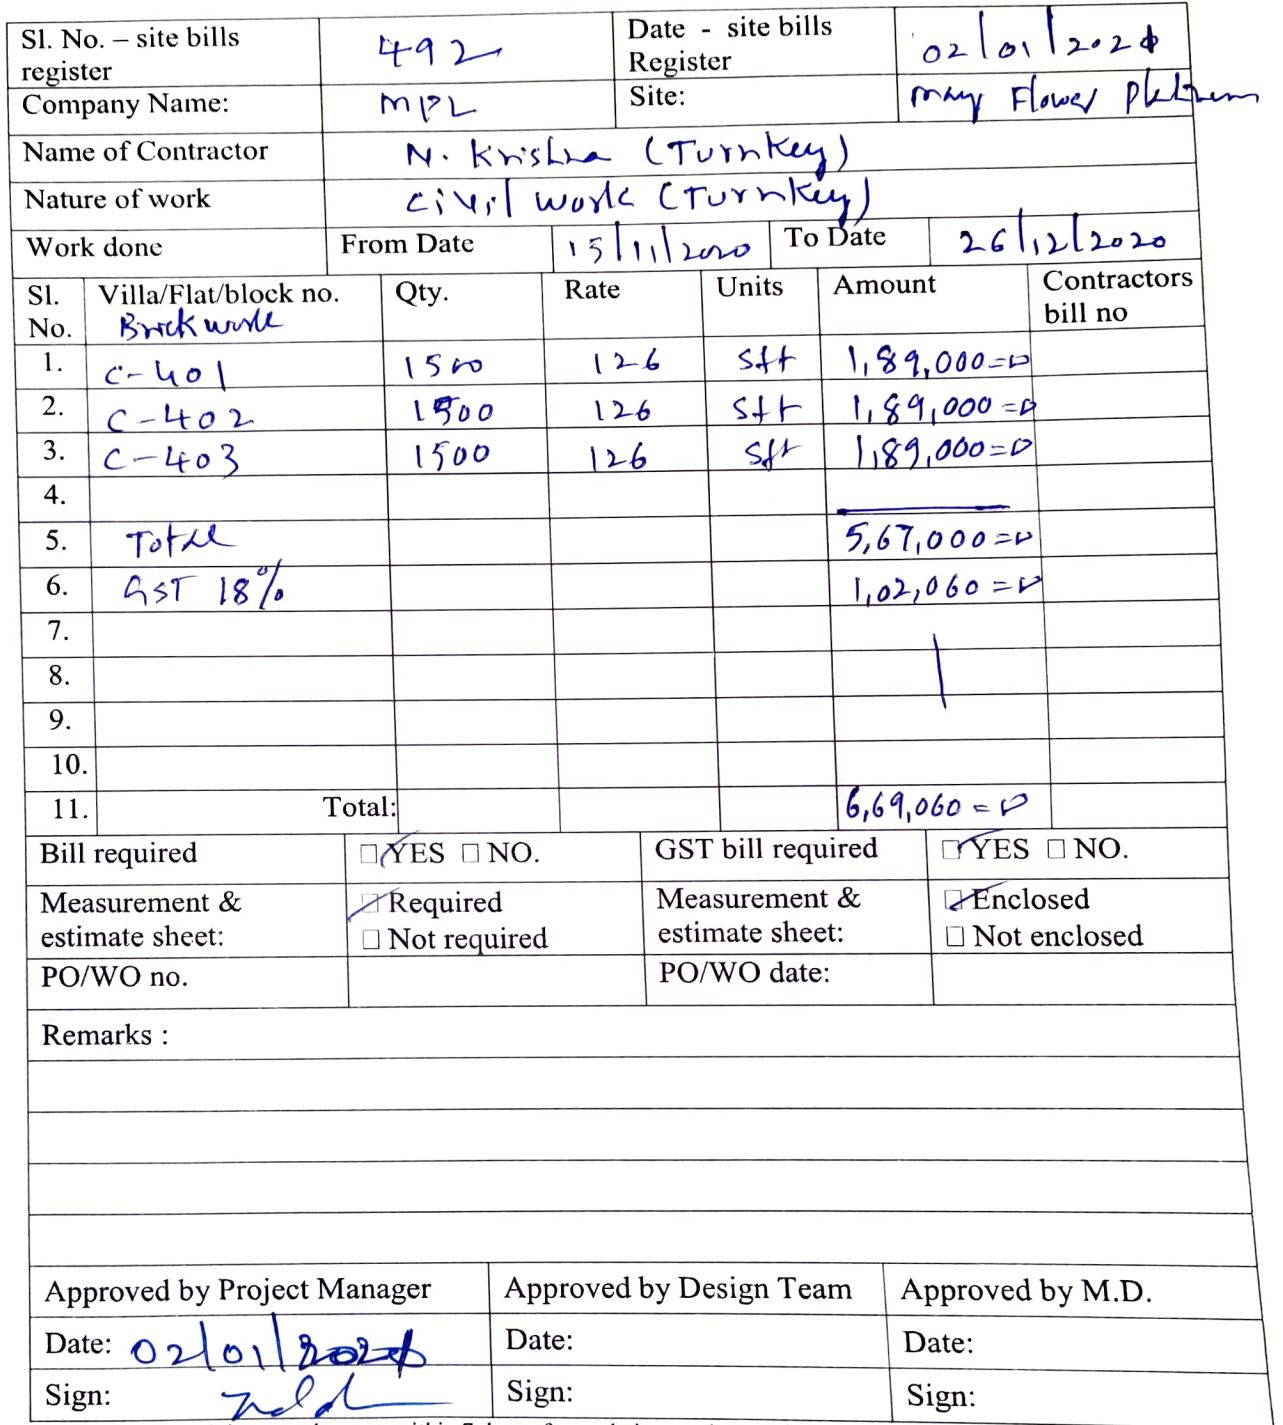 Sl. No. – site bills register 492 Date - site bills Register 02/01/2021
Company Name: MPL Site: May Flower Platinum
Name of Contractor N. Krishna (Turnkey)
Nature of work Civil work (Turnkey)
Work done From Date 15/11/2020 To Date 26/12/2020
Sl. No. Villa/Flat/block no. Brick work Qty. Rate Units Amount Contractors bill no
1. C-401 1500 126 Sft 1,89,000=0
2. C-402 1500 126 Sft 1,89,000=0
3. C-403 1500 126 Sft 1,89,000=0
4.
5. Total 5,67,000=0
6. GST 18% 1,02,060=0
7.
8.
9.
10.
11. Total: 6,69,060=0
Bill required YES NO. GST bill required YES NO.
Measurement & estimate sheet: Required Not required Measurement & estimate sheet: Enclosed Not enclosed
PO/WO no. PO/WO date:
Remarks :
Approved by Project Manager Approved by Design Team Approved by M.D.
Date: 02/01/2021 Date: Date:
Sign: Sign: Sign: